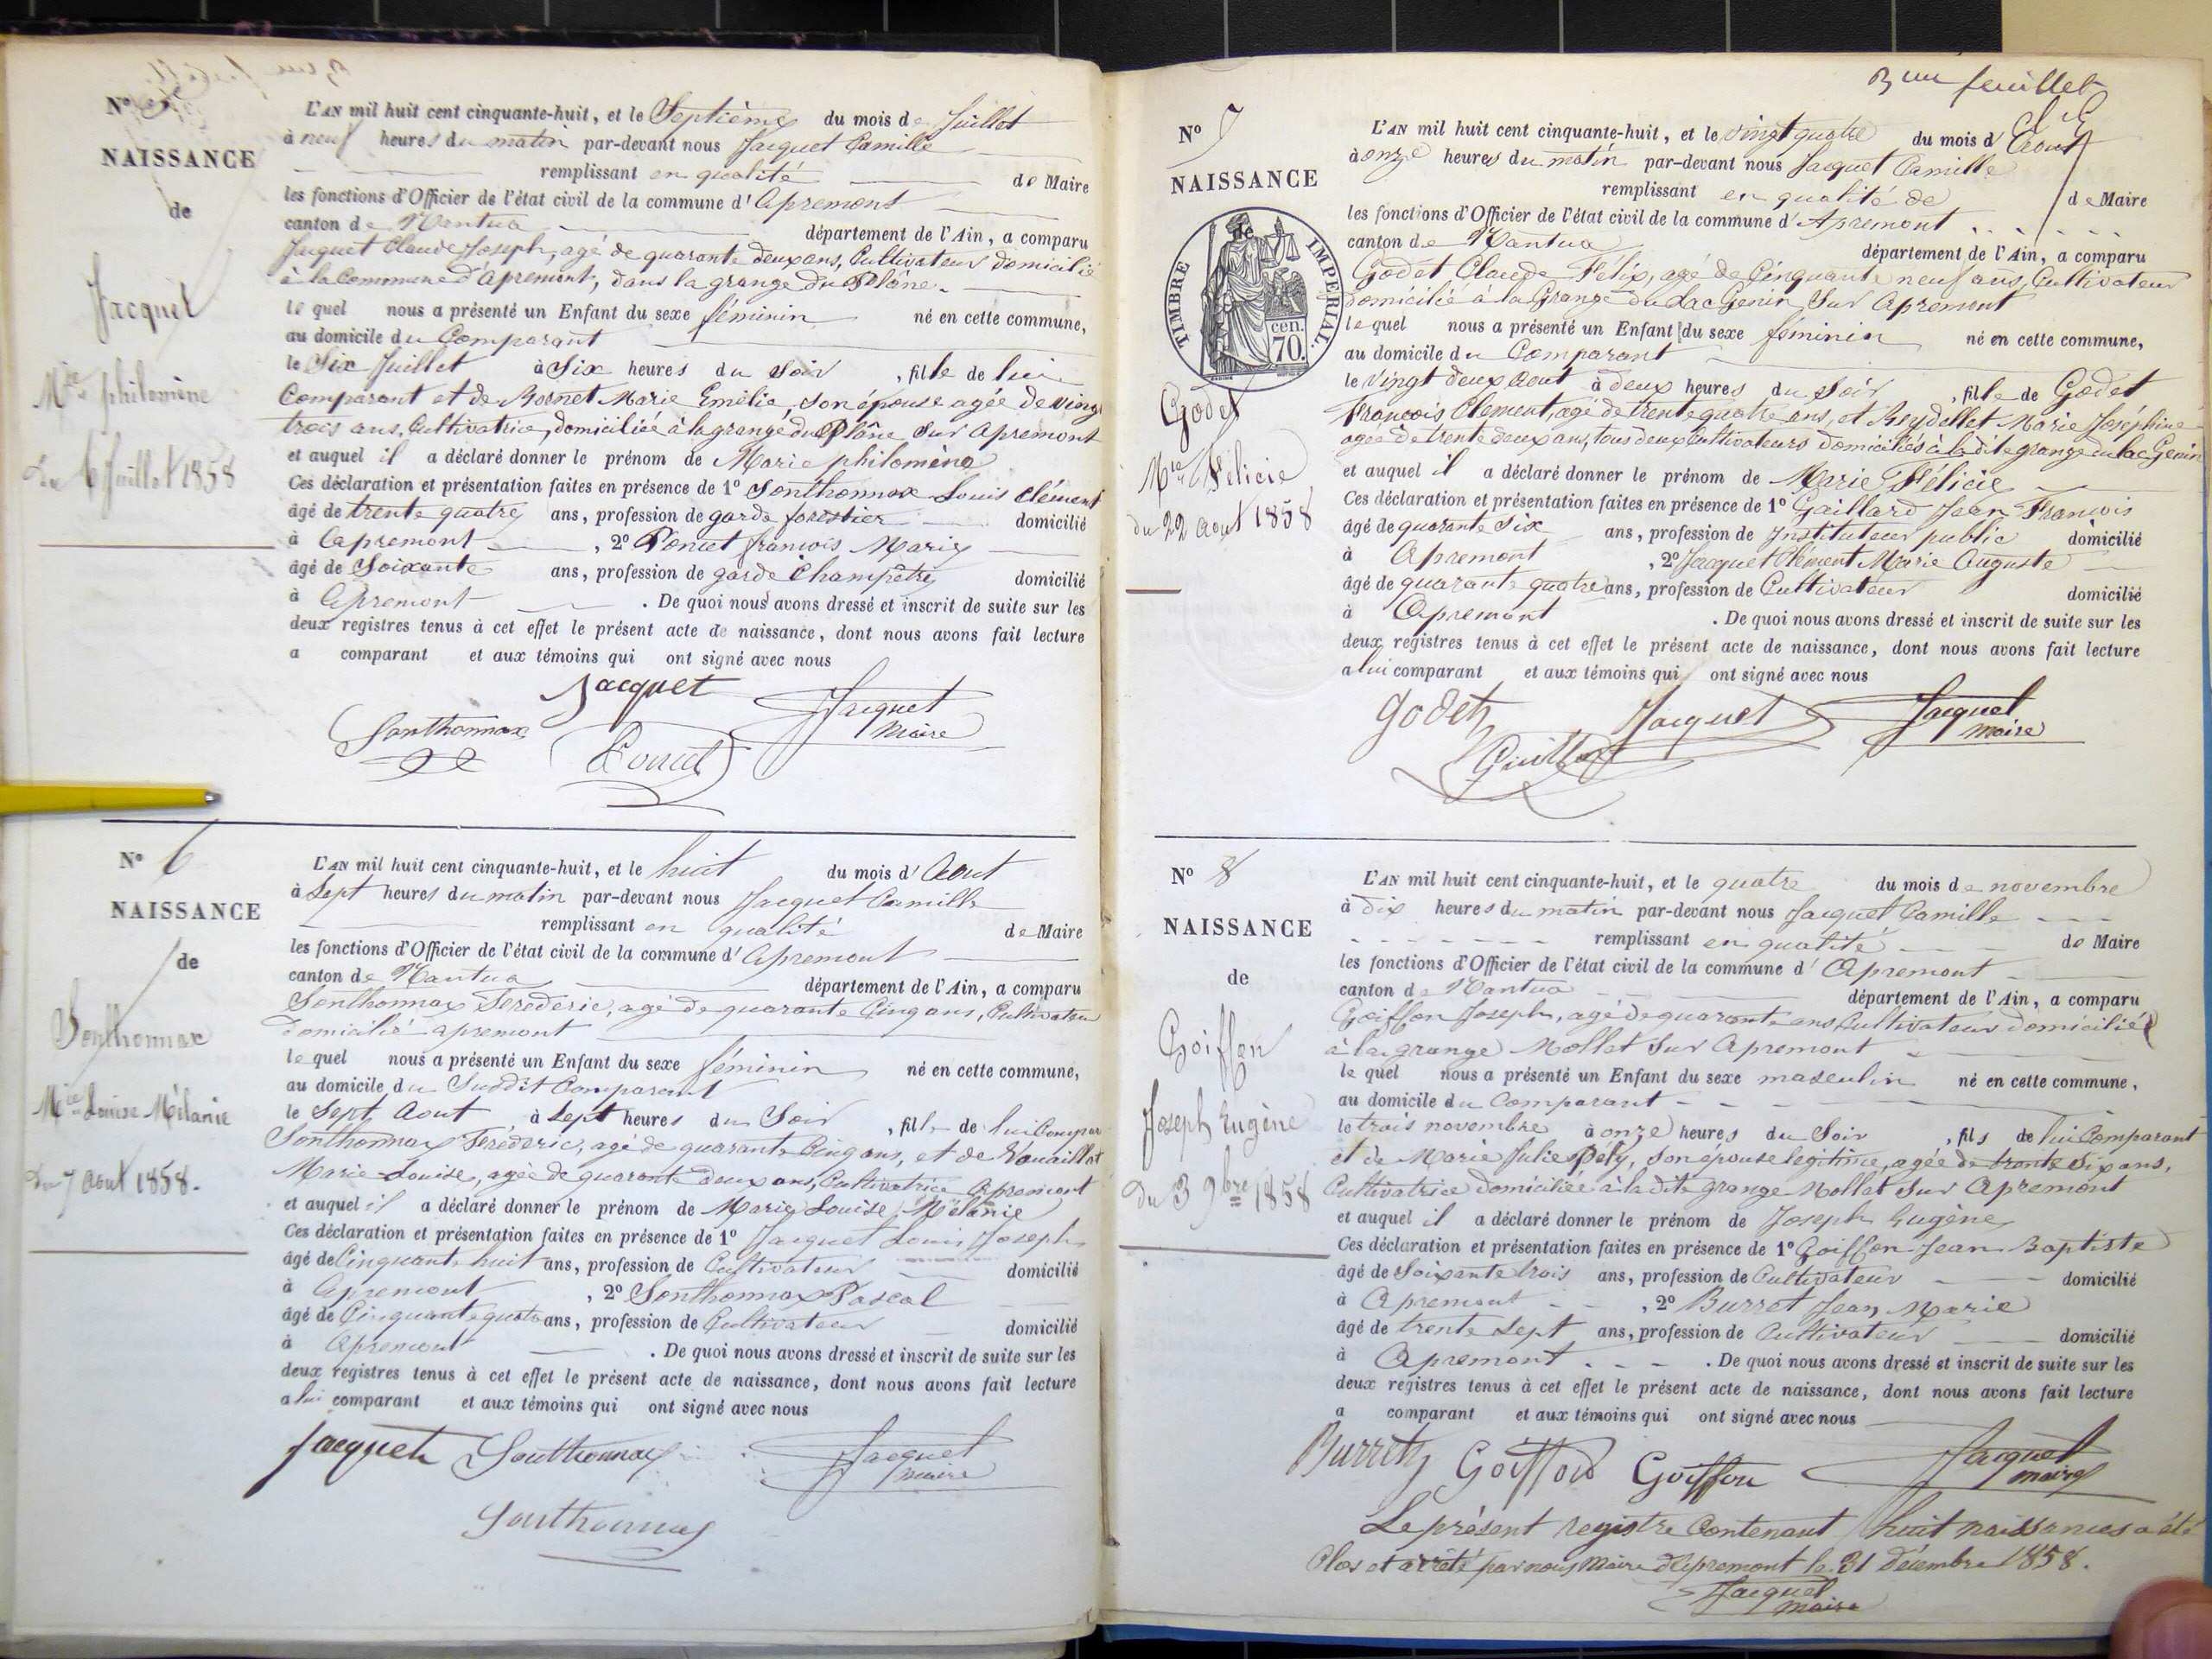 N° 5
NAISSANCE
de
Jacquet
Mie philomène
du 6 Juillet 1858
L'AN mil huit cent cinquante-huit, et le Septième du mois de Juillet
à neuf heures du matin par-devant nous Jacquet Camille
remplissant en qualité de Maire
les fonctions d'Officier de l'état civil de la commune d'Apremont
canton de Nantua département de l'Ain, a comparu
Jacquet Claude Joseph, agé de quarante deux ans, Cultivateur domicilié
à la Commune d'apremont, dans la grange du Plâne.
le quel nous a présenté un Enfant du sexe féminin né en cette commune,
au domicile du Comparant
le Six Juillet à Six heures du Soir, fille de lui
Comparant et de Bornet Marie Emélie, son épouse agée de vingt
trois ans, Cultivatrice, domiciliée à la grange du Plâne sur Apremont
et auquel il a déclaré donner le prénom de Marie philomène
Ces déclaration et présentation faites en présence de 1° Sonthonnax Louis Clément
âgé de trente quatre ans, profession de garde forestier domicilié
à Apremont, 2° Poncet françois Marie
âgé de Soixante ans, profession de garde Champêtre domicilié
à Apremont. De quoi nous avons dressé et inscrit de suite sur les
deux registres tenus à cet effet le présent acte de naissance, dont nous avons fait lecture
a comparant et aux témoins qui ont signé avec nous
Jacquet
Jacquet
Maire
Sonthonnax
Poncet
N° 6
NAISSANCE
de
Sonthonnax
Mie Louise Mélanie
du 7 aout 1858.
L'AN mil huit cent cinquante-huit, et le huit du mois d'Aout
à Sept heures du matin par-devant nous Jacquet Camille
remplissant en qualité de Maire
les fonctions d'Officier de l'état civil de la commune d'Apremont
canton de Nantua département de l'Ain, a comparu
Sonthonnax Fréderic, agé de quarante Cinq ans, Cultivateur
domicilié apremont
le quel nous a présenté un Enfant du sexe féminin né en cette commune,
au domicile du Susdit Comparant
le Sept Aout à Sept heures du Soir, fille de lui Compar
Sonthonnax Fréderic, agé de quarante Cinq ans, et de
Marie Louise, agée de quarante deux ans, Cultivatrice Apremont
et auquel il a déclaré donner le prénom de Marie Louise Mélanie
Ces déclaration et présentation faites en présence de 1° Jacquet Louis Joseph
âgé de Cinquante huit ans, profession de Cultivateur domicilié
à Apremont, 2° Sonthonnax Pascal
âgé de Cinquante quatre ans, profession de Cultivateur domicilié
à Apremont. De quoi nous avons dressé et inscrit de suite sur les
deux registres tenus à cet effet le présent acte de naissance, dont nous avons fait lecture
a lui comparant et aux témoins qui ont signé avec nous
Jacquet Sonthonnax Jacquet
maire
Sonthonnax
3me feuillet
N° 7
NAISSANCE
de
TIMBRE IMPERIAL
cen.
70.
Godet
Mie Félicie
du 22 aout 1858
L'AN mil huit cent cinquante-huit, et le vingt quatre du mois d'Aout
à onze heures du matin par-devant nous Jacquet Camille
remplissant en qualité de de Maire
les fonctions d'Officier de l'état civil de la commune d'Apremont
canton de Nantua département de l'Ain, a comparu
Godet Claude Félix, agé de Cinquante neuf ans, Cultivateur
domicilié à la Grange du Lac Genin Sur Apremont
le quel nous a présenté un Enfant du sexe féminin né en cette commune,
au domicile du Comparant
le Vingt deux Aout à deux heures du Soir, fille de Godet
François Clement, agé de trente quatre ans, et Reydellet Marie Joséphine
agée de trente deux ans, tous deux Cultivateurs domiciliés à la dite grange du lac Genin
et auquel il a déclaré donner le prénom de Marie Félicie
Ces déclaration et présentation faites en présence de 1° Gaillard Jean François
âgé de quarante six ans, profession de Instituteur public domicilié
à Apremont, 2° Jacquet Clément Marie Auguste
âgé de quarante quatre ans, profession de Cultivateur domicilié
à Apremont. De quoi nous avons dressé et inscrit de suite sur les
deux registres tenus à cet effet le présent acte de naissance, dont nous avons fait lecture
a lui comparant et aux témoins qui ont signé avec nous
Godet Jacquet Jacquet
maire
Gaillard
N° 8
NAISSANCE
de
Goiffon
Joseph Eugène
du 3 9bre 1858
L'AN mil huit cent cinquante-huit, et le quatre du mois de novembre
à dix heures du matin par-devant nous Jacquet Camille
remplissant en qualité de Maire
les fonctions d'Officier de l'état civil de la commune d'Apremont
canton de Nantua département de l'Ain, a comparu
Goiffon Joseph, agé de quarante ans Cultivateur domicilié
à la grange Mollet Sur Apremont
le quel nous a présenté un Enfant du sexe masculin né en cette commune,
au domicile du Comparant
le trois novembre à onze heures du Soir, fils de lui Comparant
et de Marie Julie Pély, son épouse légitime, agée de trente six ans,
Cultivatrice domiciliée à la dite grange Mollet sur Apremont
et auquel il a déclaré donner le prénom de Joseph Eugène
Ces déclaration et présentation faites en présence de 1° Goiffon Jean Baptiste
âgé de Soixante trois ans, profession de Cultivateur domicilié
à Apremont, 2° Burret Jean Marie
âgé de trente Sept ans, profession de Cultivateur domicilié
à Apremont. De quoi nous avons dressé et inscrit de suite sur les
deux registres tenus à cet effet le présent acte de naissance, dont nous avons fait lecture
a comparant et aux témoins qui ont signé avec nous
Burret Goiffon Goiffon Jacquet
maire
Le présent registre Contenant huit naissances a été
Clos et arrêté par nous Maire d'Apremont le 31 décembre 1858.
Jacquet
maire